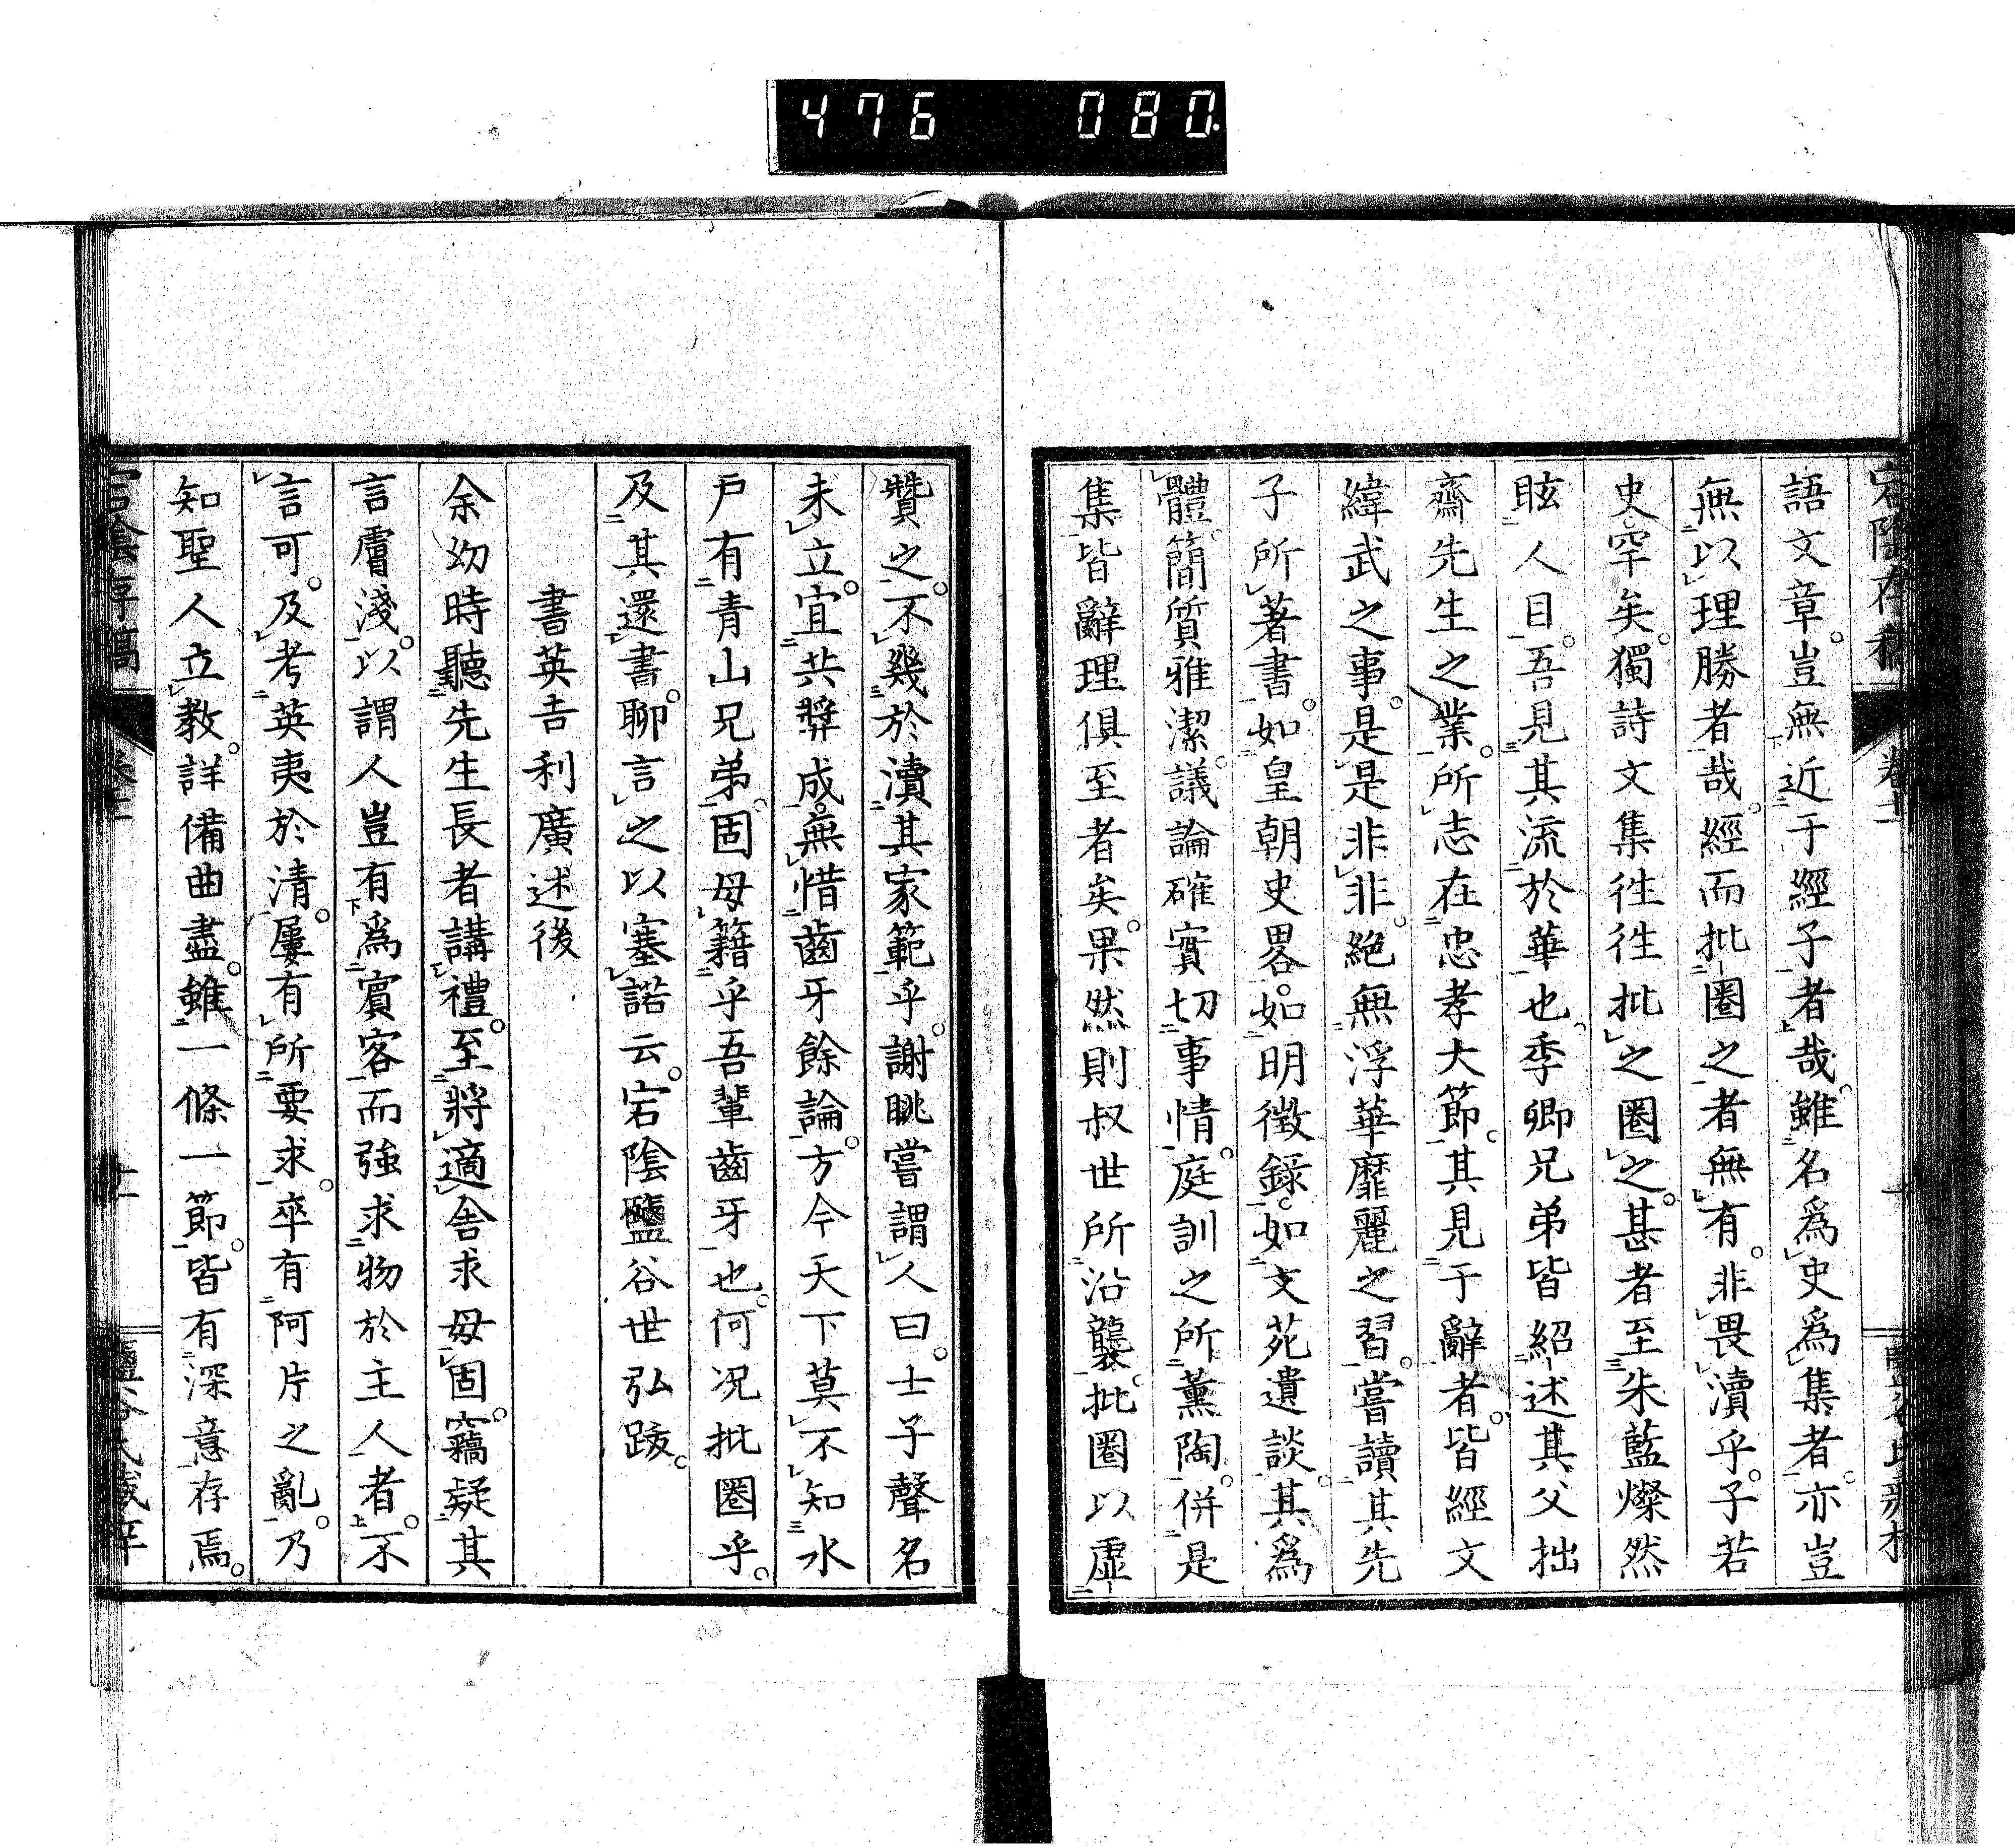 476 080
宕陰存稿 卷十二
語文章。豈無近于經子者哉。雖名爲史爲集者。亦豈
無以理勝者哉。經而批圈之者無有。非畏瀆乎。子若
史罕矣。獨詩文集徃徃批之圈之。甚者至朱藍燦然
眩人目。吾見其流於華也。季卿兄弟皆紹述其父拙
齋先生之業。所志在忠孝大節。其見于辭者。皆經文
緯武之事。是是非非。絕無浮華靡麗之習。嘗讀其先
子所著書。如皇朝史畧。如明徵錄。如文苑遺談。其爲
體。簡質雅潔。議論確實切事情。庭訓之所薰陶。併是
集皆辭理俱至者矣。果然則叔世所沿襲。批圈以虛
贊之。不幾於瀆其家範乎。謝眺嘗謂人曰。士子聲名
未立。宜共奬成。無惜齒牙餘論。方今天下莫不知水
戶有青山兄弟。固毋籍乎吾輩齒牙也。何况批圈乎。
及其還書。聊言之以塞諾云。宕陰鹽谷世弘跋。
書英吉利廣述後
余幼時聽先生長者講禮。至將適舍求毋固。竊疑其
言膚淺。以謂人豈有爲賓客而強求物於主人者。不
言可。及考英夷於清。屢有所要求。卒有阿片之亂。乃
知聖人立教。詳備曲盡。雖一條一節。皆有深意存焉。
宕陰存稿 卷十二 十一 鹽谷氏藏梓